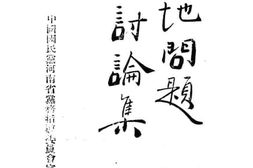 地問題
討論集
中國國民黨河南省黨務指導委員會